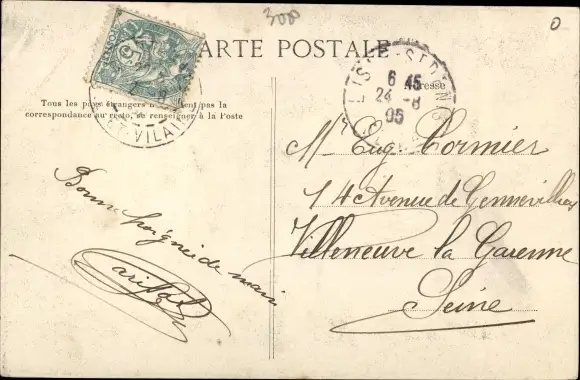 3000
0
CARTE POSTALE
Tous les pays étrangers n'acceptent pas la
correspondance au recto, se renseigner à la Poste
Adresse
6 45
24 -8
05
ET-VILAI
5
Mr Eug. Cormier
14 Avenue de Gennevilliers
Villeneuve la Garenne
Seine
Bonne poignée de main